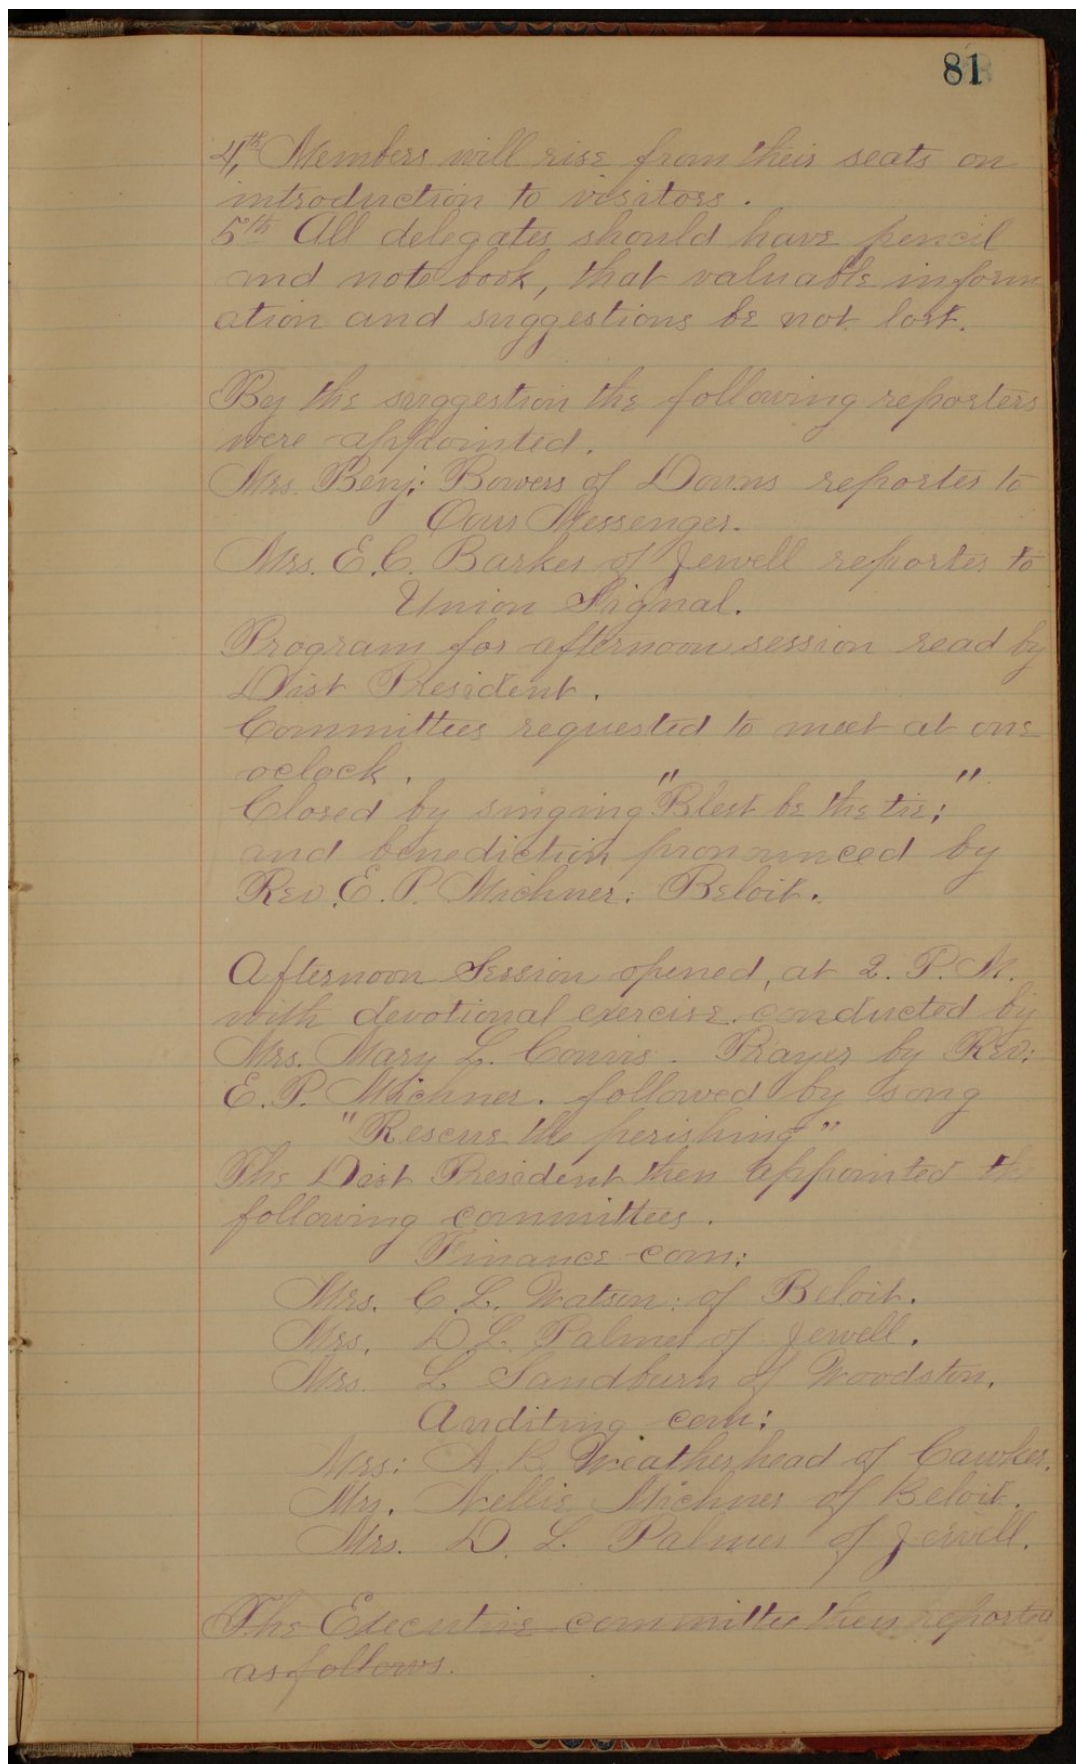 81
4,th Members will rise from their seats on
introduction to visitors.
5th All delegates should have pencil
and note book, that valuable inform
ation and suggestions be not lost.
By the suggestion the following reporters
were appointed.
Mrs. Benj; Bowers of Downs reporter to
Our Messenger.
Mrs. E.C. Barker of Jewell reporter to
Union Signal.
Program for afternoon session read by
Dist President.
Committees requested to meet at one
oclock.
Closed by singing "Blest be the tie;"
and benediction pronounced by
Rev. E. P. Michner; Beloit.
Afternoon Session opened, at 2. P. M.
with devotional exercise conducted by
Mrs. Mary L. Prayer by Rev;
E. P. Michner. followed by song
"Rescue the perishing"
The Dist President then appointed the
following committees.
Finance com;
Mrs. C. L. Watson; of Beloit.
Mrs. D L Palmer of Jewell.
Mrs. L Sandburn of Woodston.
Auditing com;
Mrs; A. B. Weatherhead of Cawker.
Mrs. Nellie Michner of Beloit.
Mrs. D. L. Palmer of Jewell.
The Executive committee then reported
as follows.